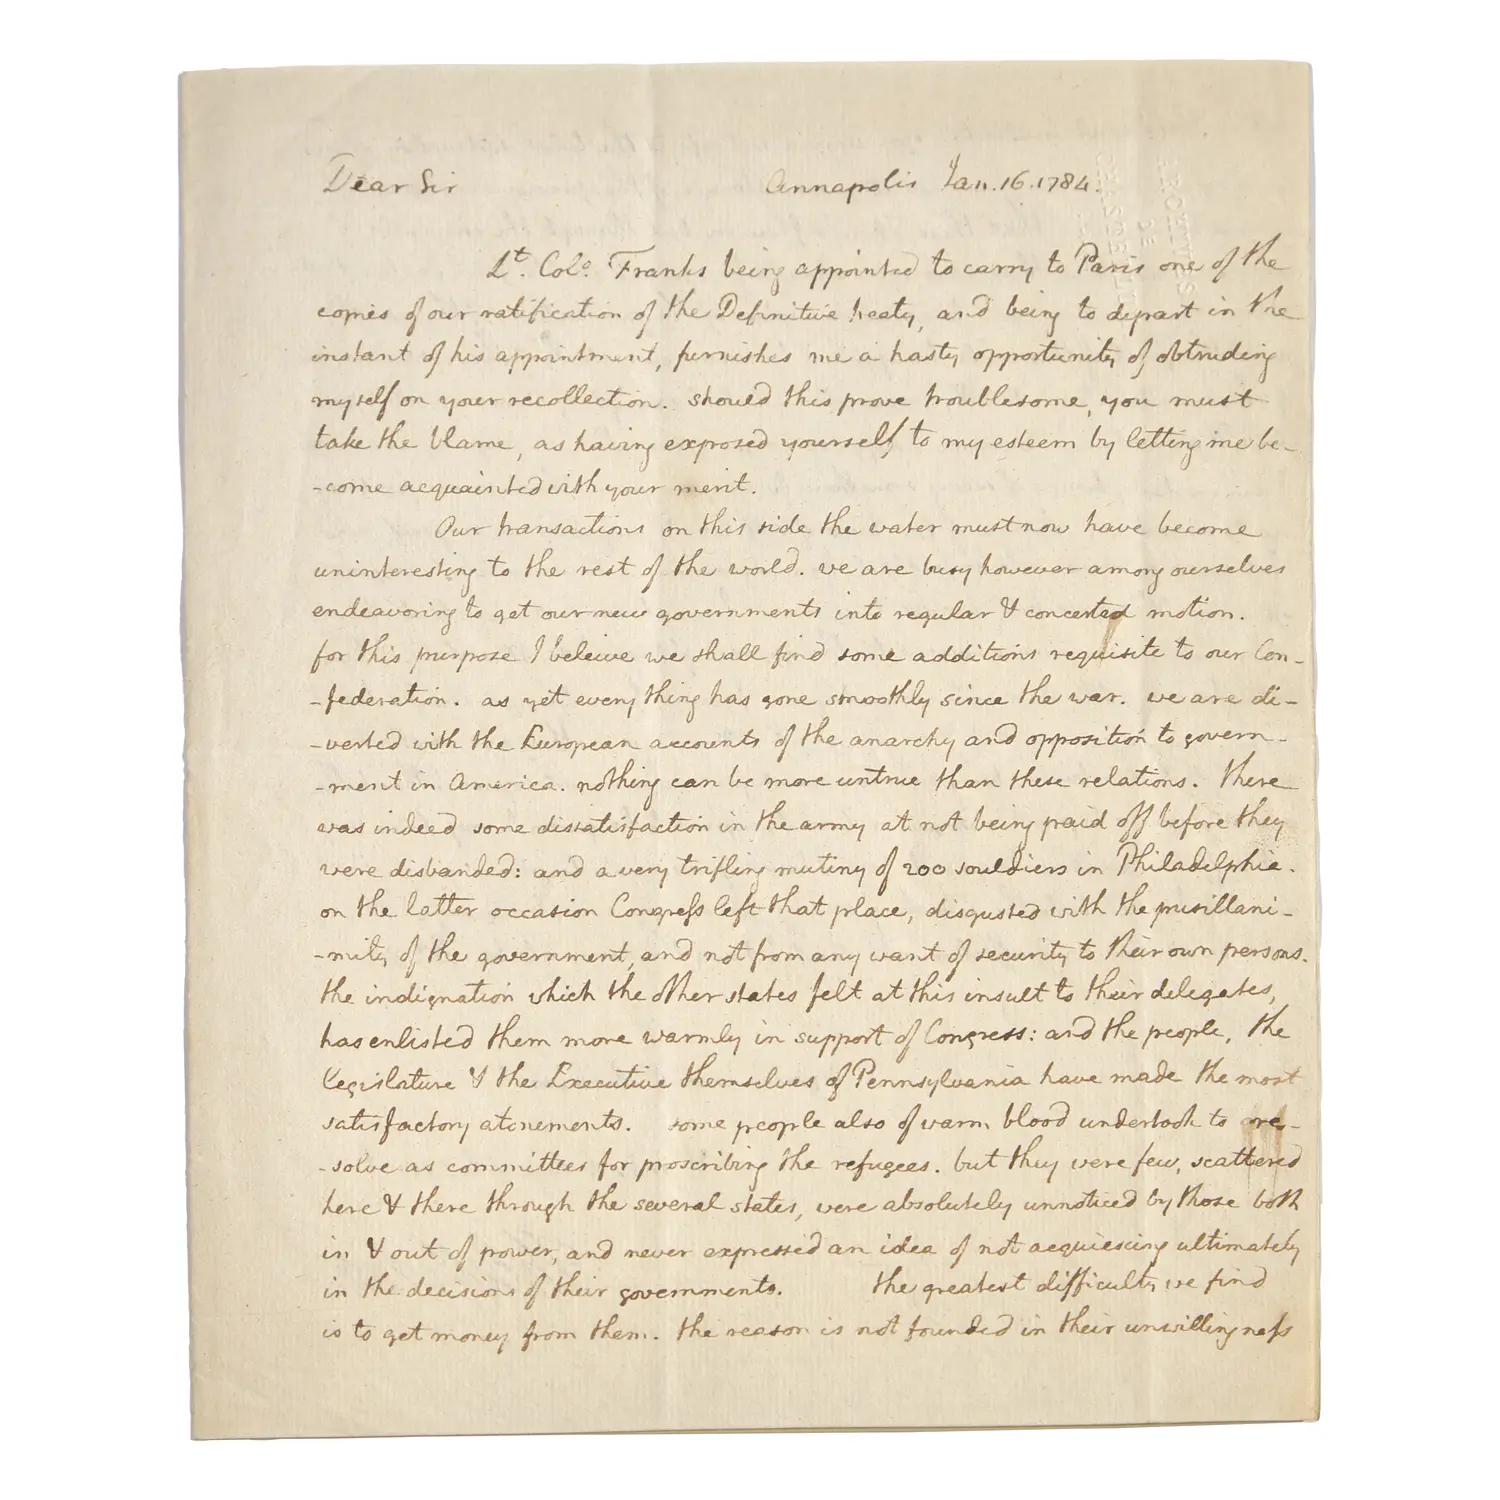 Dear Sir Annapolis Jan. 16. 1784.
Lt. Colo. Franks being appointed to carry to Paris one of the
copies of our ratification of the Definitive treaty, and being to depart in the
instant of his appointment, furnishes me a hasty opportunity of obtruding
myself on your recollection. should this prove troublesome, you must
take the blame, as having exposed yourself to my esteem by letting me be-
-come acquainted with your merit.
Our transactions on this side the water must now have become
uninteresting to the rest of the world. we are busy however among ourselves
endeavoring to get our new governments into regular & concerted motion.
for this purpose I beleive we shall find some additions requisite to our Con-
-federation. as yet every thing has gone smoothly since the war. we are di-
-verted with the European accounts of the anarchy and opposition to govern-
-ment in America. nothing can be more untrue than these relations. There
was indeed some dissatisfaction in the army at not being paid off before they
were disbanded: and a very trifling mutiny of 200 souldiers in Philadelphia.
on the latter occasion Congress left that place, disgusted with the pusillani-
-mity of the government, and not from any want of security to their own persons.
the indignation which the other states felt at this insult to their delegates,
has enlisted them more warmly in support of Congress: and the people, the
legislature & the Executive themselves of Pennsylvania have made the most
satisfactory atonements. some people also of warm blood undertook to re-
-solve as committees for proscribing the refugees. but they were few, scattered
here & there through the several states, were absolutely unnoticed by those both
in & out of power, and never expressed an idea of not acquiescing ultimately
in the decisions of their governments. the greatest difficulty we find
is to get money from them. the reason is not founded in their unwillingness